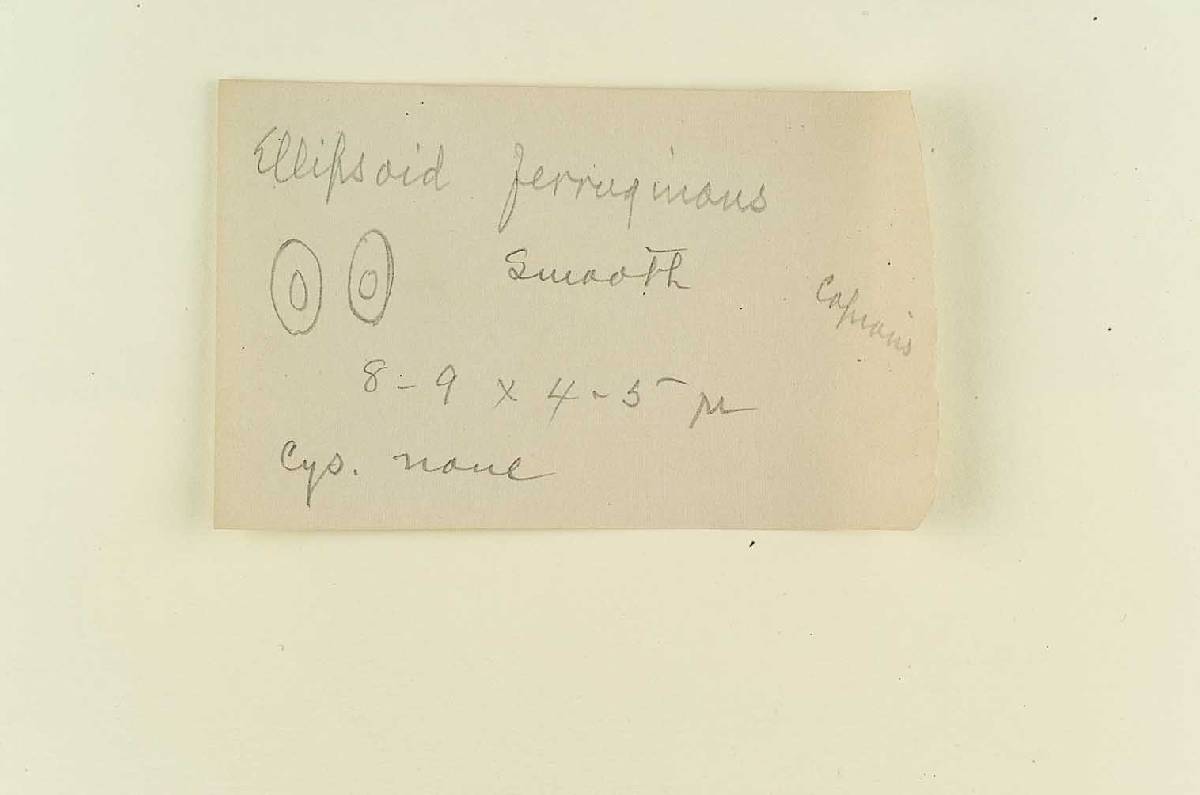 Ellipsoid ferruginous
Smooth
8-9 x 4-5 µ
Cys. none